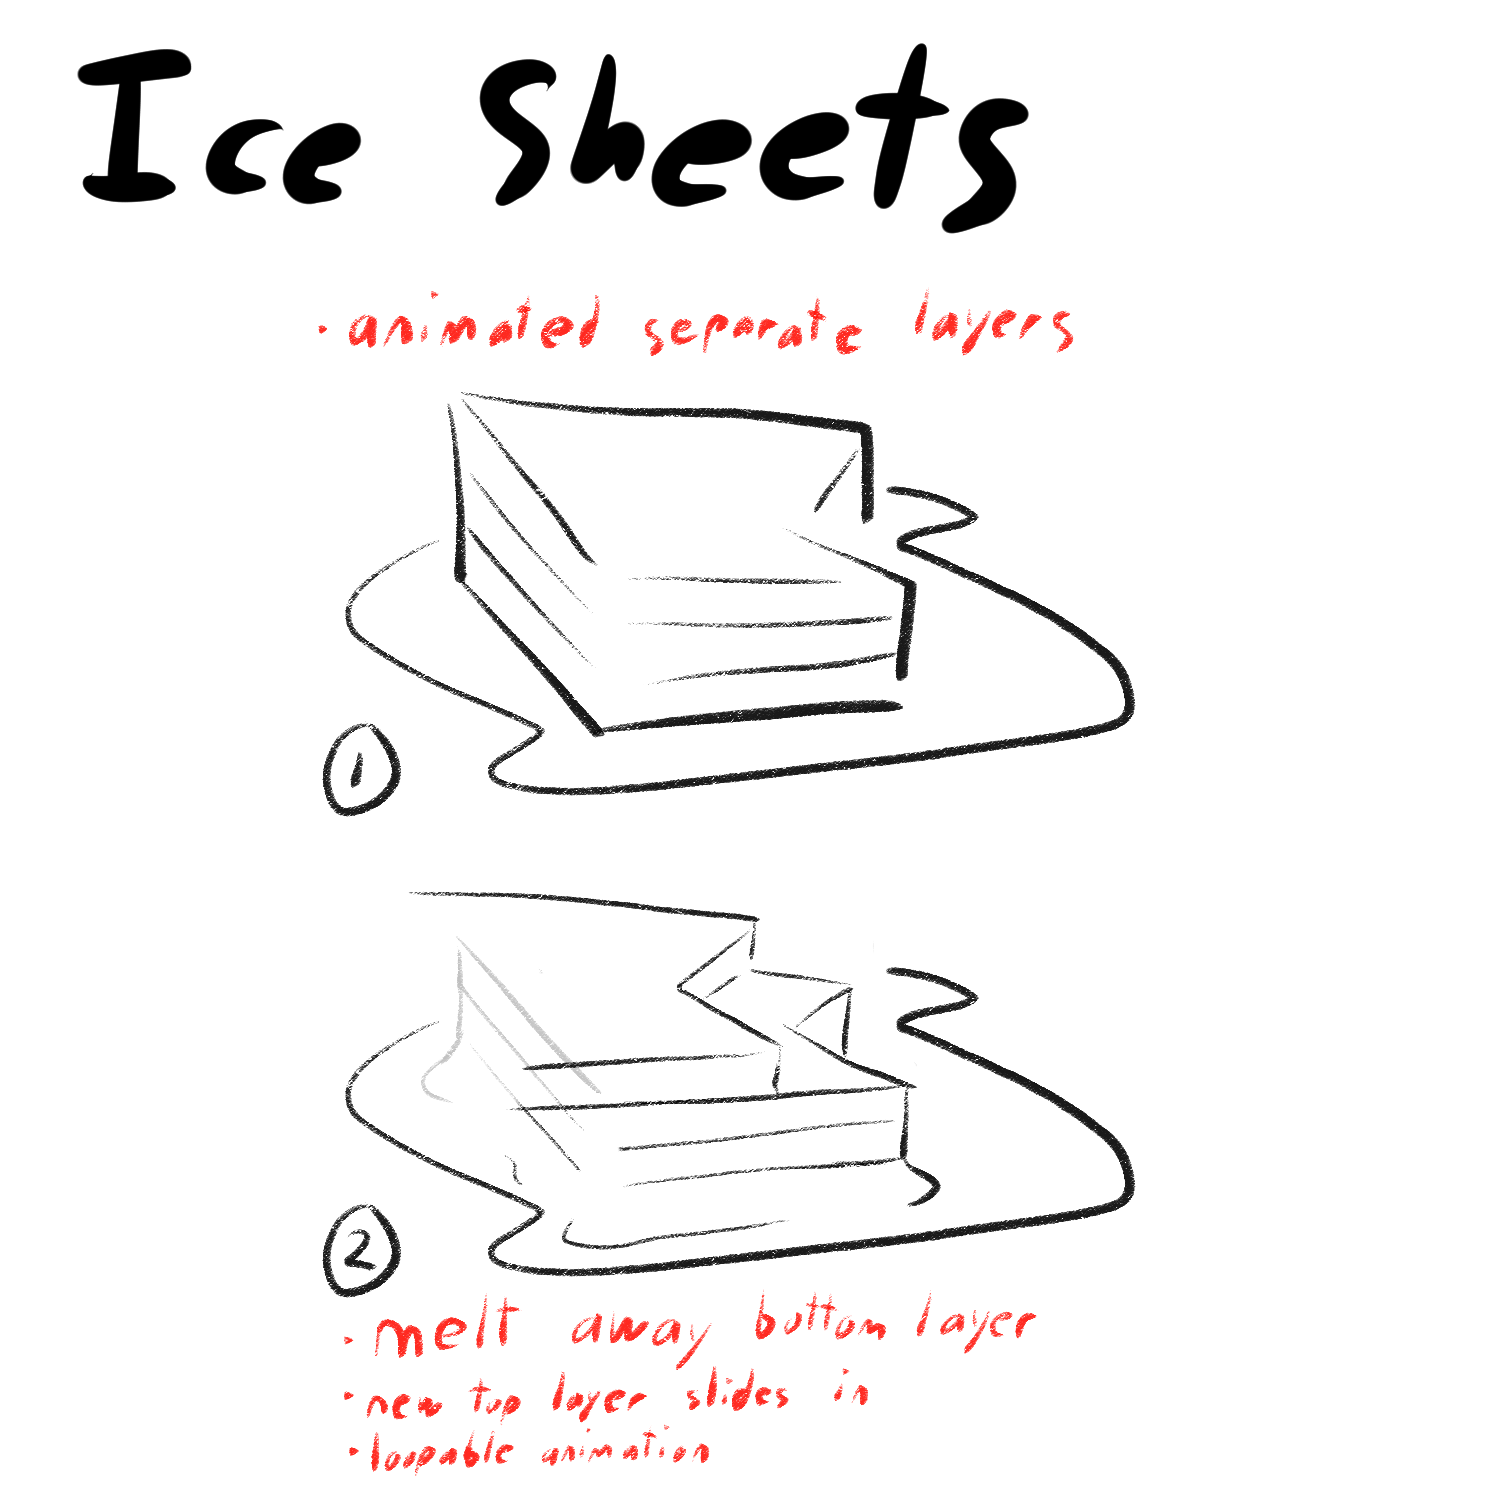 Ice Sheets
• animated separate layers
1
2
• melt away bottom layer
• new top layer slides in
• loopable animation